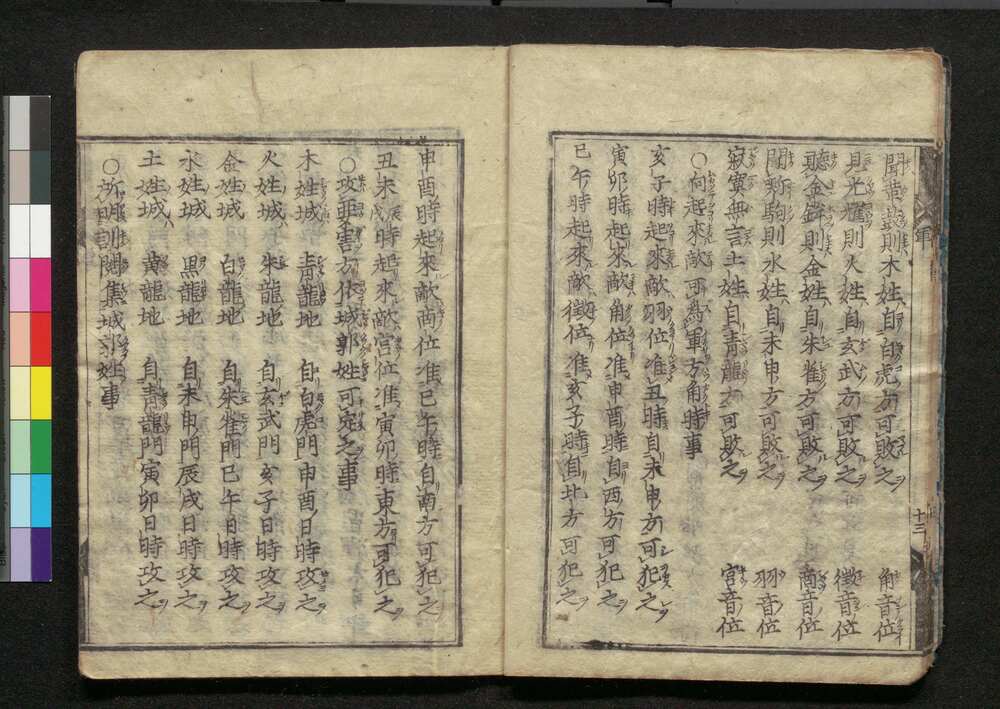 聞茸鼓則木姓自白虎方可敗之 角音位
見光耀則火姓自玄武方可敗之 徴音位
聽金鉾則金姓自朱雀方可敗之 商音位
聞鞍駒則水姓自未申方可敗之 羽音位
寂寞無言土姓自青龍方可敗之 宮音位
○向起來敵可為軍方角時事
亥子時起來敵羽位准丑時自未申方可犯之
寅卯時起來敵角位准申酉時自西方可犯之
巳午時起來敵徴位准亥子時自北方可犯之
申酉時起來敵商位准巳午時自南方可犯之
丑未辰戌時起來敵宮位准寅卯時東方可犯之
○攻亜害方依城郭姓可定之事
木姓城 青龍地 自白虎門申酉日時攻之
火姓城 朱龍地 自玄武門亥子日時攻之
金姓城 白龍地 自朱雀門巳午日時攻之
水姓城 黒龍地 自未申門辰戌日時攻之
土姓城 黄龍地 自青龍門寅卯日時攻之
○所間集城郭姓事
軍
十三